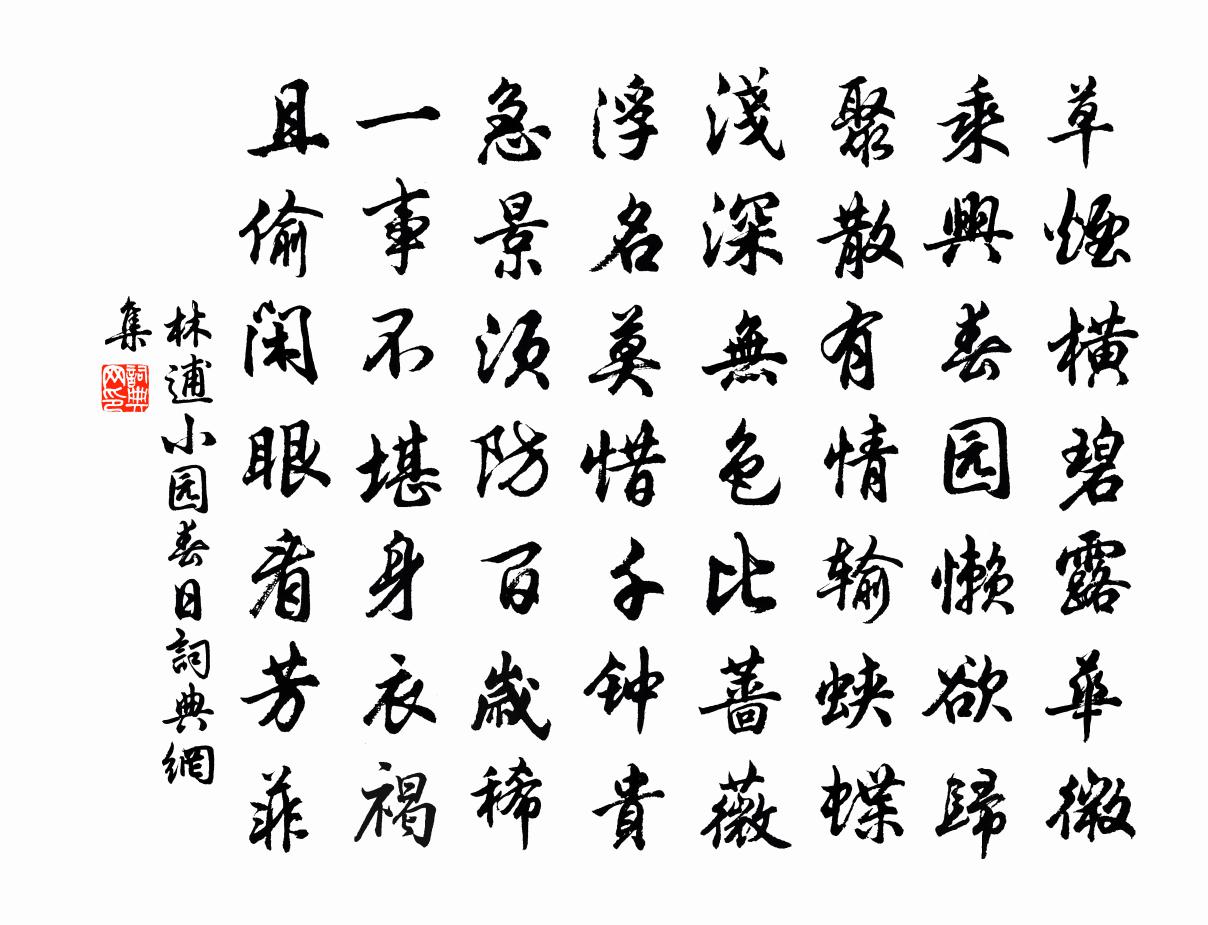 草煙橫碧露華微
乘興春园懶欲歸
聚散有情输蛺蝶
淺深無色比薔薇
浮名莫惜千钟貴
急景须防百歲稀
一事不堪身衣褐
且偷闲眼看芳菲
林逋小园春日詞典網
集
詞典
网印